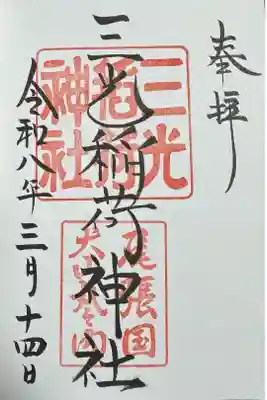 奉拝
三光稲荷神社
三光
稲荷
神社
尾張国
犬山城内
令和八年三月十四日